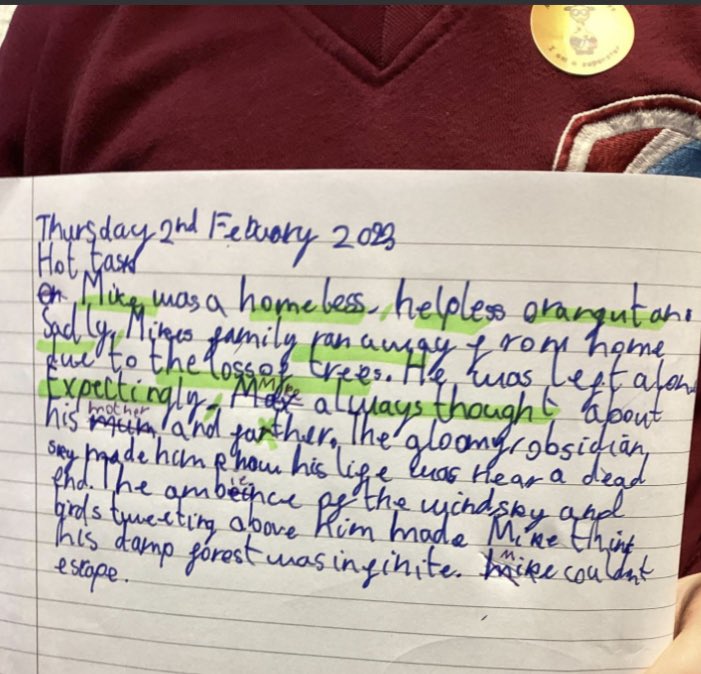 I am a superstar
Thursday 2nd Febuary 2023
Hot task
Mike was a homeless, helpless orangutan.
Sadly, Mikes family ran away from home
due to the loss of trees. He was left alon
Expectingly, Mike always thought about
his mother and farther. The gloomy, obsidian,
sky made him know his life was near a dead
end. The ambience of the wind sky and
birds tweeting above him made Mike think
his damp forest was infinite. Mike couldnt
escape.